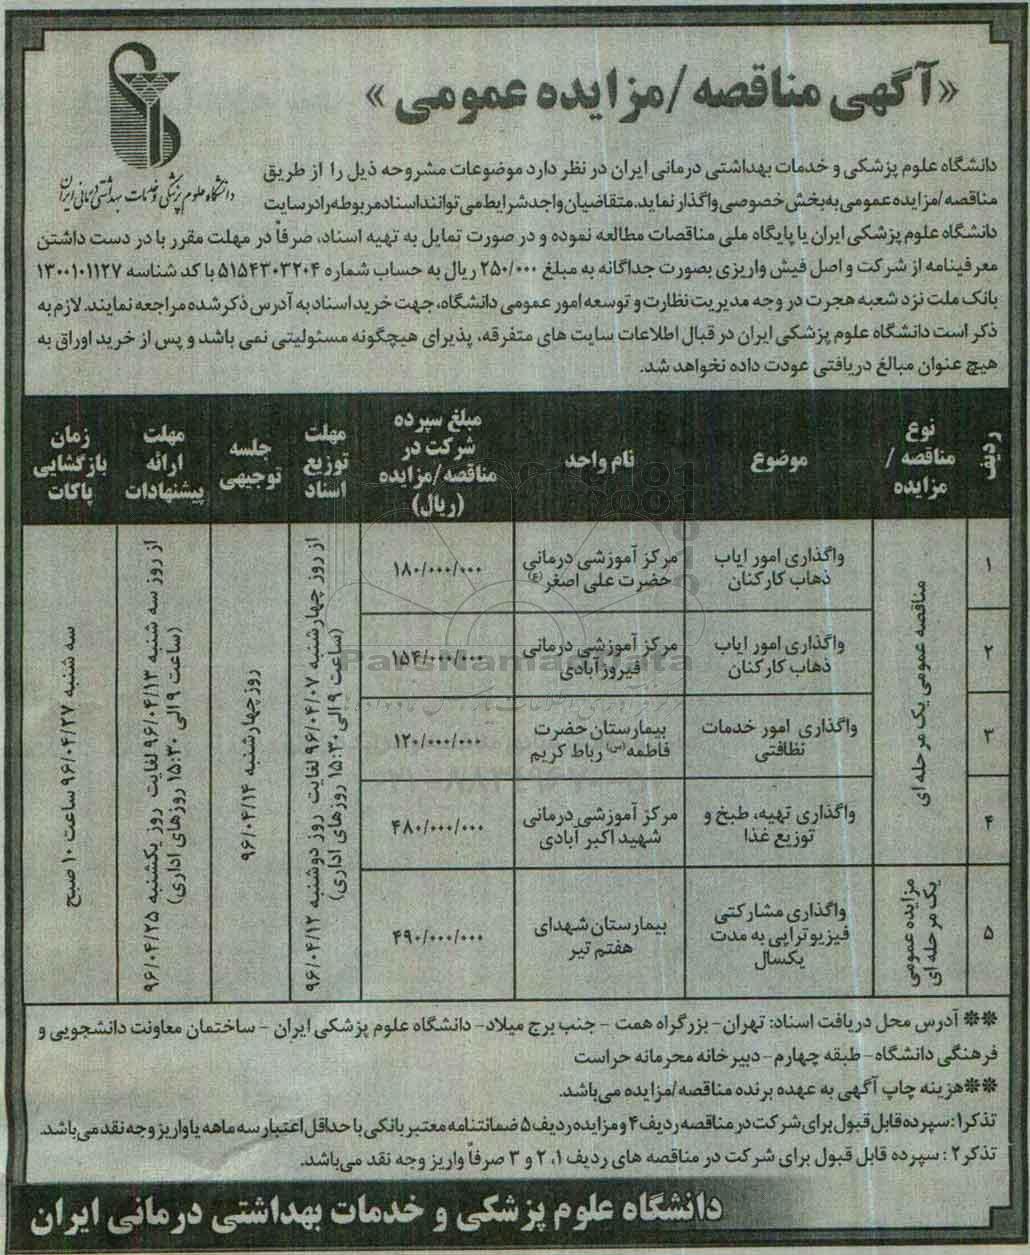 «آگهی مناقصه /مزایده عمومی »
دانشگاه علوم پزشکی و خدمات بهداشتی درمانی ایران
دانشگاه علوم پزشکی و خدمات بهداشتی درمانی ایران در نظر دارد موضوعات مشروحه ذیل را از طریق
مناقصه /مزایده عمومی به بخش خصوصی واگذار نماید، متقاضیان واجد شرایط می توانند اسناد مربوطه را در سایت
دانشگاه علوم پزشکی ایران یا پایگاه ملی مناقصات مطالعه نموده و در صورت تمایل به تهیه اسناد، صرفاً در مهلت مقرر با در دست داشتن
معرفینامه از شرکت و اصل فیش واریزی بصورت جداگانه به مبلغ ۲۵۰/۰۰۰ ریال به حساب شماره ۵۱۵۴۳۰۳۲۰۴ با کد شناسه ۱۳۰۰۱۰۱۱۲۷
بانک ملت نزد شعبه هجرت در وجه مدیریت نظارت و توسعه امور عمومی دانشگاه، جهت خرید اسناد به آدرس ذکر شده مراجعه نمایند. لازم به
ذکر است دانشگاه علوم پزشکی ایران در قبال اطلاعات سایت های متفرقه، پذیرای هیچگونه مسئولیتی نمی باشد و پس از خرید اوراق به
هیچ عنوان مبالغ دریافتی عودت داده نخواهد شد.
ردیف
نوع
مناقصه /
مزایده
موضوع
نام واحد
مبلغ سپرده
شرکت در
مناقصه /مزایده
(ریال)
مهلت
توزیع
اسناد
جلسه
توجیهی
مهلت
ارائه
پیشنهادات
زمان
بازگشایی
پاکات
۱
مناقصه عمومی یک مرحله ای
واگذاری امور ایاب
ذهاب کارکنان
مرکز آموزشی درمانی
حضرت علی اصغر(ع)
۱۸۰/۰۰۰/۰۰۰
از روز چهارشنبه ۹۶/۰۴/۰۷ لغایت روز دوشنبه ۹۶/۰۴/۱۲
(ساعت ۹ الی ۱۵:۳۰ روزهای اداری)
روز چهارشنبه ۹۶/۰۴/۱۴
از روز سه شنبه ۹۶/۰۴/۱۳ لغایت روز یکشنبه ۹۶/۰۴/۲۵
(ساعت ۹ الی ۱۵:۳۰ روزهای اداری)
سه شنبه ۹۶/۰۴/۲۷ ساعت ۱۰ صبح
۲
واگذاری امور ایاب
ذهاب کارکنان
مرکز آموزشی درمانی
فیروزآبادی
۱۵۴/۰۰۰/۰۰۰
۳
واگذاری امور خدمات
نظافتی
بیمارستان حضرت
فاطمه(س) رباط کریم
۱۲۰/۰۰۰/۰۰۰
۴
واگذاری تهیه، طبخ و
توزیع غذا
مرکز آموزشی درمانی
شهید اکبر آبادی
۴۸۰/۰۰۰/۰۰۰
۵
مزایده عمومی
یک مرحله ای
واگذاری مشارکتی
فیزیوتراپی به مدت
یکسال
بیمارستان شهدای
هفتم تیر
۴۹۰/۰۰۰/۰۰۰
ParsNamadData
** آدرس محل دریافت اسناد: تهران- بزرگراه همت - جنب برج میلاد- دانشگاه علوم پزشکی ایران - ساختمان معاونت دانشجویی و
فرهنگی دانشگاه- طبقه چهارم- دبیرخانه محرمانه حراست
**هزینه چاپ آگهی به عهده برنده مناقصه/مزایده می‌باشد.
تذکر۱: سپرده قابل قبول برای شرکت در مناقصه ردیف ۴ و مزایده ردیف ۵ ضمانتنامه معتبر بانکی با حداقل اعتبار سه ماهه یا واریز وجه نقد می باشد.
تذکر۲ : سپرده قابل قبول برای شرکت در مناقصه های ردیف ۱، ۲ و ۳ صرفاً واریز وجه نقد می‌باشد.
دانشگاه علوم پزشکی و خدمات بهداشتی درمانی ایران